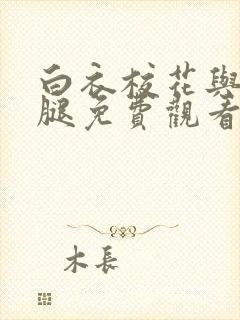 白衣校花與
腿免費觀看
木長